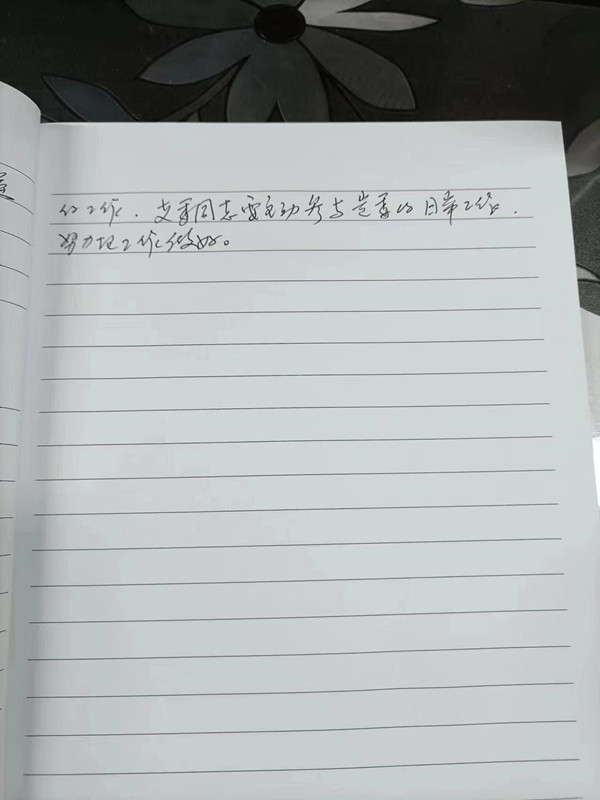 的工作，支委同志要主动参与党委的日常工作，
努力把工作做好。